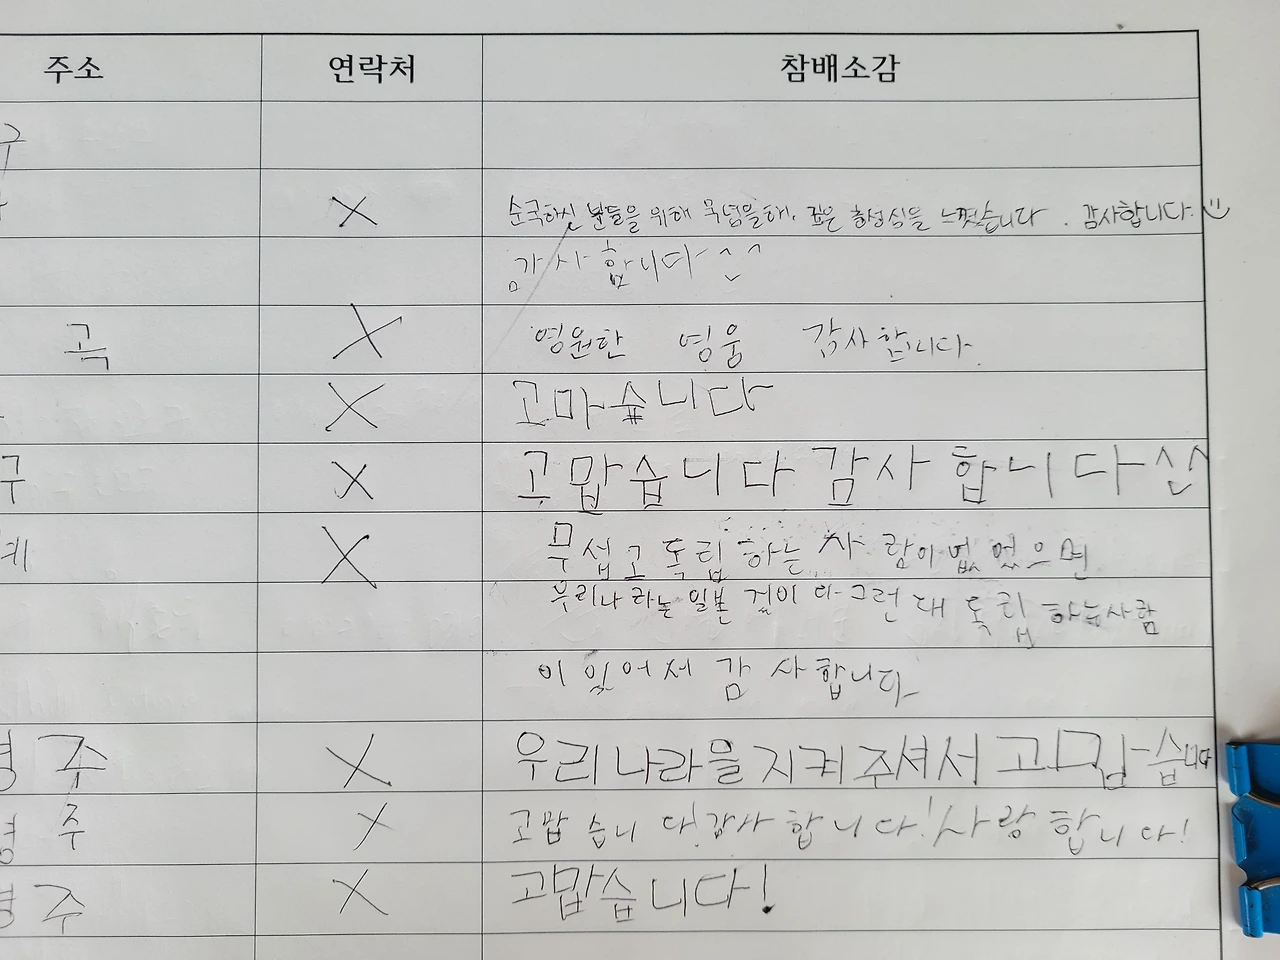 주소 연락처 참배소감
구
X 순국하신 분들을 위해 묵념을해, 깊은 항성심을 느꼈습니다. 감사합니다.
감사합니다 ^^
곡 X 영원한 영웅 감사합니다.
X 고마습니다
구 X 고맙습니다 감사합니다
계 X 무섭고 독립하는 사람이 없었으면
우리나라는 일본 겄이다 그런대 독립하는사람
이 있어서 감사합니다
경주 X 우리나라를 지켜주셔서 고맙습니다
경주 X 고맙습니다! 감사합니다! 사랑합니다!
경주 X 고맙습니다!